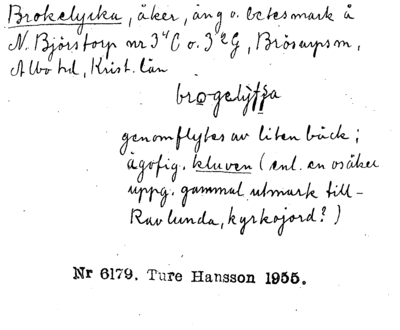 Brokelycka, åker, äng o. betesmark å
N. Björstorp nr 3⁴C o. 3²G, Brösarps sn,
Albo hd, Krist. län
genomflytes av liten bäck;
ägofig. kluven (enl. en osäker
uppg. gammal utmark till
Ravlunda, kyrkojord?)
Nr 6179. Ture Hansson 1955.